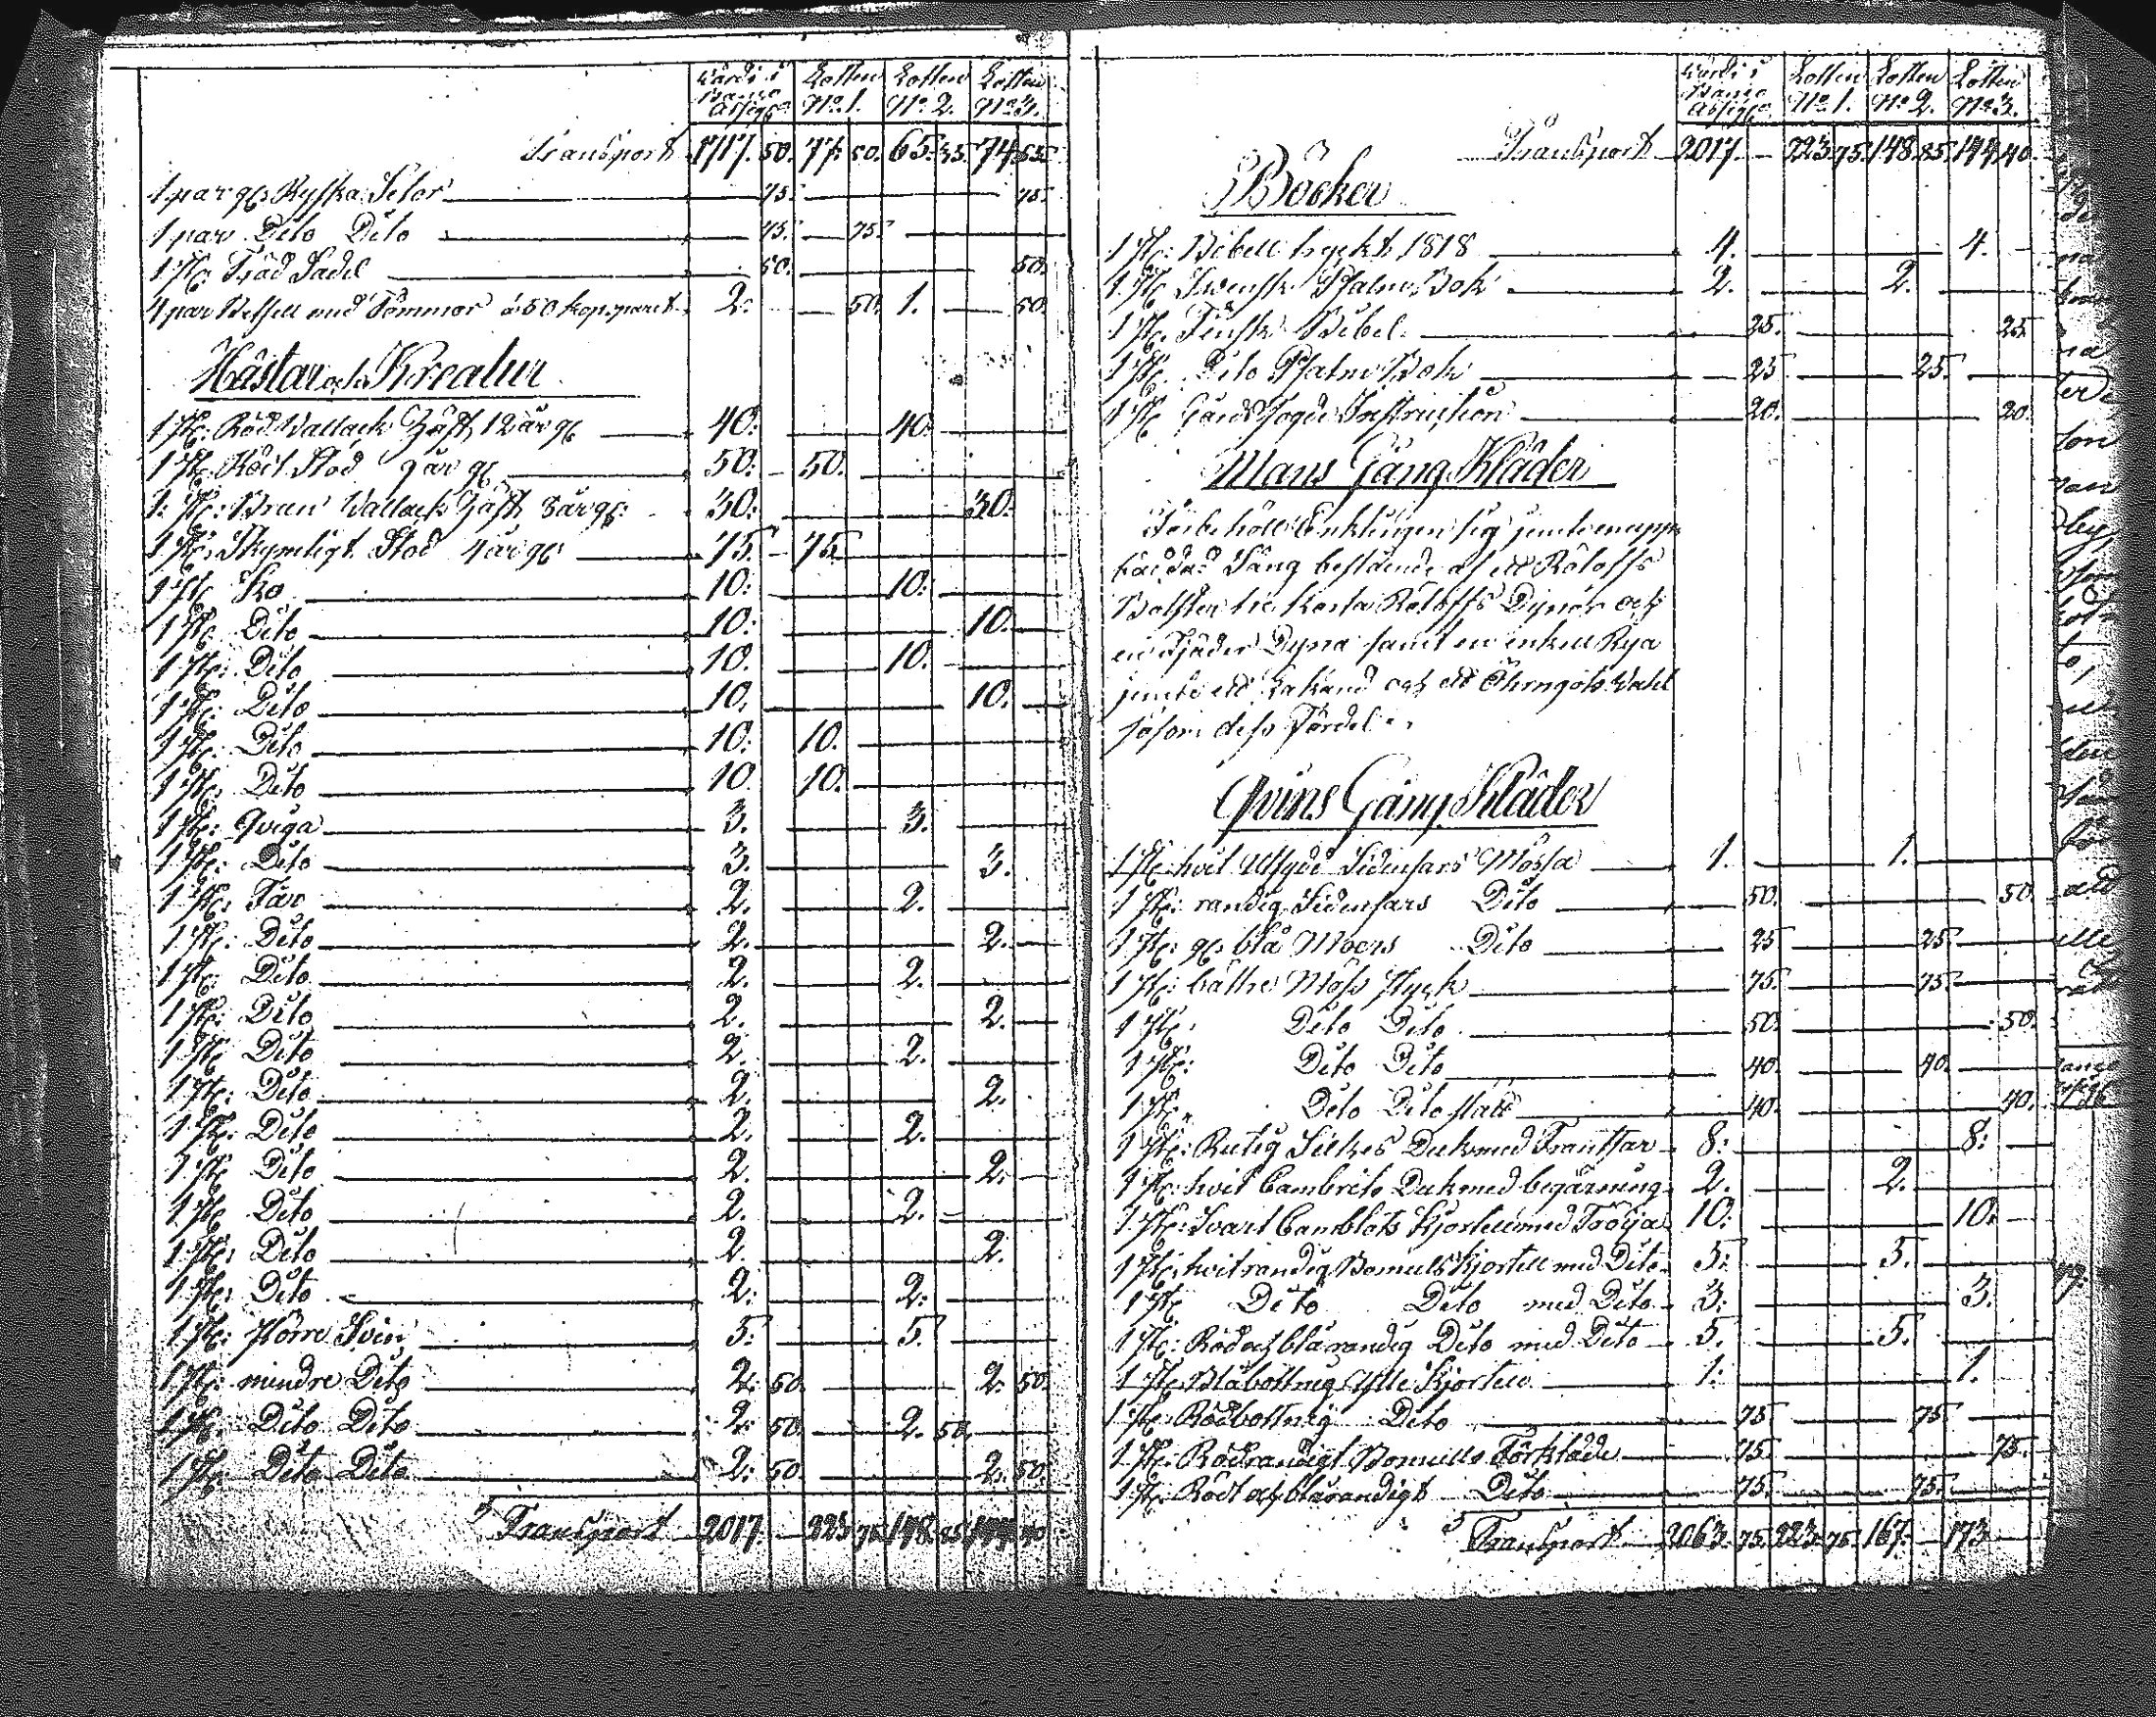 Wärdi i Banco Assign: | Lotten No 1. | Lotten No 2. | Lotten No 3.
Transport 1717. 50. 77. 50. 65. 35. 74. 65.
1 par gl. Ryska Selor 75. 75.
1 par Dito Dito 75. 75.
1 St: Träd Sadel 50. 50.
4 par Betsell med Tömmor à 50 kop. paret 2. 50. 1. 50.
Hästar och Kreatur
1 St: Röd Wallack Häst 12 år gl. 40. 40.
1 St: Rödt Stod 9 år gl. 50. 50.
1 St: Brun Wallack Häst 8 år gl. 30. 30.
1 St: Skymligt Stod 4 år gl. 75. 75.
1 St: Ko 10: 10:
1 St: Dito 10: 10.
1 St: Dito 10. 10.
1 St: Dito 10. 10.
1 St: Dito 10: 10.
1 St: Dito 10. 10.
1 St: Qviga 3. 3.
1 St: Dito 3. 3.
1 St: Får 2. 2.
1 St: Dito 2. 2.
1 St: Dito 2. 2.
1 St: Dito 2. 2.
1 St: Dito 2. 2.
1 St: Dito 2. 2.
1 St: Dito 2. 2.
1 St: Dito 2. 2.
1 St: Dito 2. 2.
1 St: Dito 2. 2.
1 St: Dito 2: 2:
1 St: Större Svin 5: 5.
1 St: mindre Dito 2: 50. 2. 50.
1 St: Dito Dito 2: 50. 2. 50.
1 St: Dito Dito 2: 50. 2. 50.
Transport 2017. 223. 75. 148. 85. 144. 40
Wärdi i Banco Assign: | Lotten No 1. | Lotten No 2. | Lotten No 3.
Transport 2017. 223. 75. 148. 85. 144. 40.
Böcker
1 St: Bibell tryckt 1818 4. 4.
1 St: Swensk Psalm Bok 2. 2.
1 St: Finsk Bibel 25. 25.
1 St: Dito Psalm Bok 25 25.
1 St: Gärds Fogde Instruction 20. 20.
Mans Gång Kläder
Förbehöll Enklingen sig jemte en upp
bäddad Säng bestående af ett Råloffs
Bolster tre korta Råloffs Dynor och
en Fjäder Dyna samt en enkell Rya
jemte ett Lakand och ett Öhrngots Wahl
såsom dess Fördel
Qvins Gång Kläder
1 St: hvit Utsydd Sidensars Mössa 1. 1.
1 St: randig Sidensars Dito 50. 50.
1 St: gl. blå Moers Dito 25 25
1 St: bättre Möss Styck 75. 75.
1 St: Dito Dito 50. 50.
1 St: Dito Dito 40. 40.
1 St: Dito Dito 40. 40.
1 St: Rutig Silkes Duk med Frantsar 8: 8:
1 St: hvit Cambrits Duk med begärning 2. 2.
1 St: Svart Camblots Kjortell med Tröija 10: 10.
1 St: hvitrandig Bomulls Kjortell med Dito 5: 5.
1 St: Dito Dito med Dito 3: 3.
1 St: Röd och blårandig Dito med Dito 5. 5.
1 St: Blåbottnig Ylle Kjortell 1: 1.
1 St: Rödbottnig Dito 75 75
1 St: Rödrandigt Bomulls Förkläde 75. 75.
1 St: Rödt och blårandigt Dito 75. 75.
Transport 2063. 75. 223. 75. 167. 173